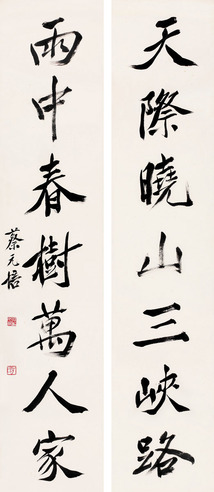 天際曉山三峽路
雨中春樹萬人家
蔡元培